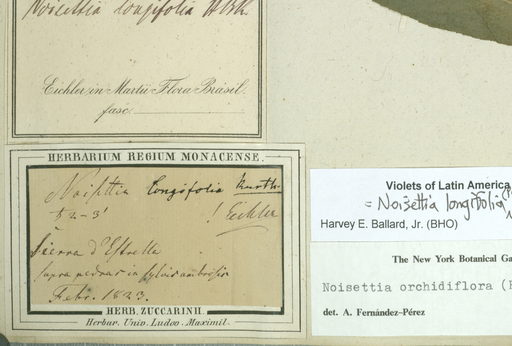 Noisettia longifolia H.B.K.
Eichler in Martii Flora Brasil.
fasc.
HERBARIUM REGIUM MONACENSE.
Noisettia longifolia Kunth.
ħ 2-3'
! Eichler
Sierra d'Estrella
supra pedras in sylvis umbrosis
Febr. 1823.
HERB. ZUCCARINII.
Herbar. Univ. Ludov. Maximil.
Violets of Latin America
= Noisettia longifolia
Harvey E. Ballard, Jr. (BHO)
The New York Botanical Ga
Noisettia orchidiflora (
det. A. Fernández-Pérez